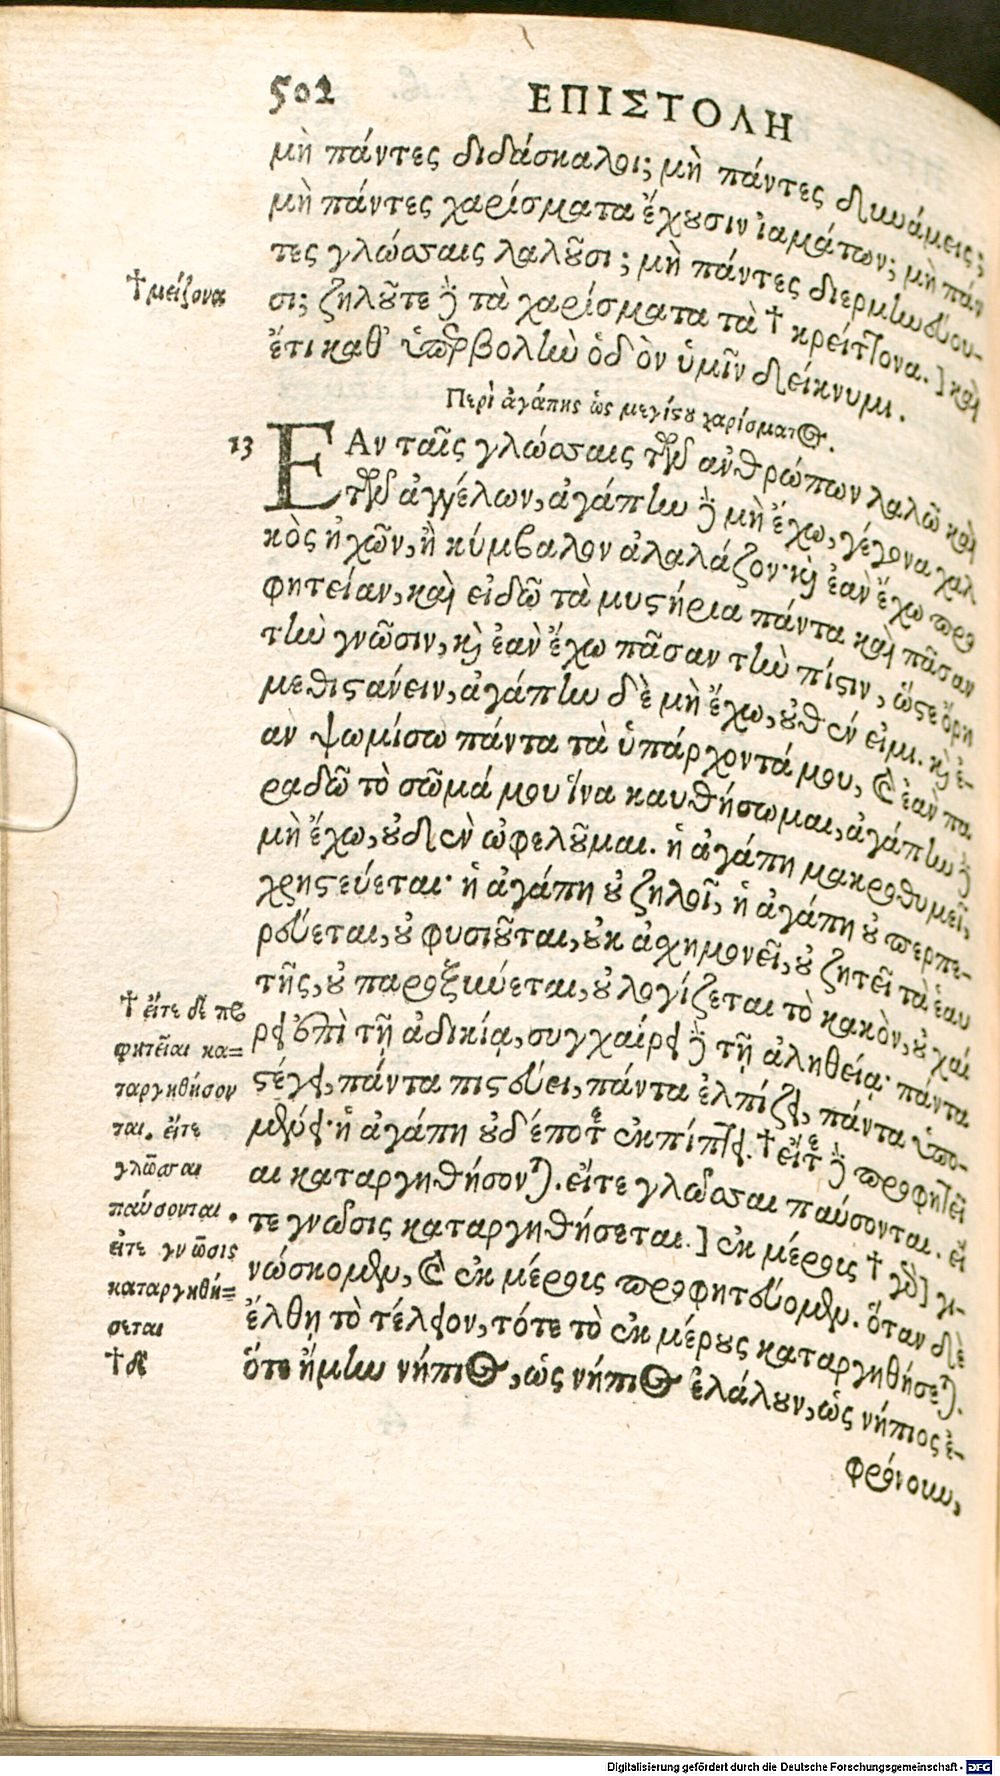 502
ΕΠΙΣΤΟΛΗ
μὴ πάντες διδάσκαλοι; μὴ πάντες δυνάμεις;
μὴ πάντες χαρίσματα ἔχουσιν ἰαμάτων; μὴ πάν
τες γλώσσαις λαλοῦσι; μὴ πάντες διερμηνεύου-
σι; ζηλοῦτε δὲ τὰ χαρίσματα τὰ † κρείττονα.] καὶ
ἔτι καθ' ὑπερβολὴν ὁδὸν ὑμῖν δείκνυμι.
Περὶ ἀγάπης ὡς μεγίστου χαρίσματος.
13
ΕΑν ταῖς γλώσσαις τῶν ἀνθρώπων λαλῶ καὶ
τῶν ἀγγέλων, ἀγάπην δὲ μὴ ἔχω, γέγονα χαλ
κὸς ἠχῶν, ἢ κύμβαλον ἀλαλάζον· καὶ ἐὰν ἔχω προ
φητείαν, καὶ εἰδῶ τὰ μυστήρια πάντα καὶ πᾶσαν
τὴν γνῶσιν, καὶ ἐὰν ἔχω πᾶσαν τὴν πίστιν, ὥστε ὄρη
μεθιστάνειν, ἀγάπην δὲ μὴ ἔχω, οὐθέν εἰμι. καὶ ἐ-
ὰν ψωμίσω πάντα τὰ ὑπάρχοντά μου, καὶ ἐὰν πα
ραδῶ τὸ σῶμά μου ἵνα καυθήσωμαι, ἀγάπην δὲ
μὴ ἔχω, οὐδὲν ὠφελοῦμαι. ἡ ἀγάπη μακροθυμεῖ,
χρηστεύεται· ἡ ἀγάπη οὐ ζηλοῖ, ἡ ἀγάπη οὐ περπε-
ρεύεται, οὐ φυσιοῦται, οὐκ ἀσχημονεῖ, οὐ ζητεῖ τὰ ἑαυ
τῆς, οὐ παροξύνεται, οὐ λογίζεται τὸ κακὸν, οὐ χαί
ρει ἐπὶ τῇ ἀδικίᾳ, συγχαίρει δὲ τῇ ἀληθείᾳ· πάντα
στέγει, πάντα πιστεύει, πάντα ἐλπίζει, πάντα ὑπο-
μένει· ἡ ἀγάπη οὐδέποτε ἐκπίπτει. † εἴτε δὲ προφητεῖ
αι καταργηθήσονται. εἴτε γλῶσσαι παύσονται. εἴ
τε γνῶσις καταργηθήσεται.] ἐκ μέροις † γὰρ] γι-
νώσκομεν, καὶ ἐκ μέροις προφητεύομεν. ὅταν δὲ
ἔλθῃ τὸ τέλειον, τότε τὸ ἐκ μέρους καταργηθήσεται.
ὅτε ἤμην νήπιος, ὡς νήπιος ἐλάλουν, ὡς νήπιος ἐ-
φρόνουν,
† μείζονα
† εἴτε δὲ προ
φητεῖαι κα=
ταργηθήσον
ται. εἴτε
γλῶσσαι
παύσονται.
εἴτε γνῶσις
καταργηθή=
σεται
† δὲ
Digitalisierung gefördert durch die Deutsche Forschungsgemeinschaft - DFG